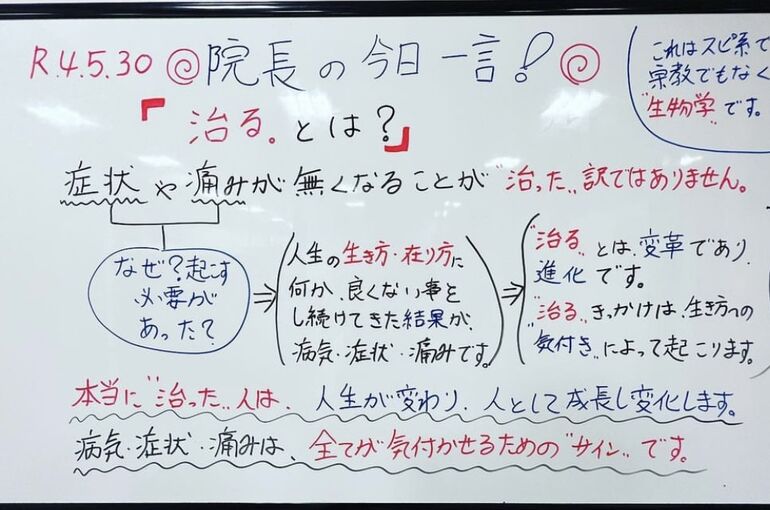 R.4.5.30 @院長の今日一言! @
これはスピ系で
宗教でもなく
"生物学"です。
『治る。とは?』
症状や痛みが無くなることが"治った"訳ではありません。
なぜ?起こす
必要が
あった?
⇒
人生の生き方・在り方に
何か、良くない事を
し続けてきた結果が、
病気・症状・痛みです。
⇒
"治る"とは、変革であり、
進化です。
"治る"きっかけは、生き方への
"気付き"によって起こります。
本当に"治った"人は、人生が変わり、人として成長し変化します。
病気・症状・痛みは、全てが気付かせるための"サイン"です。